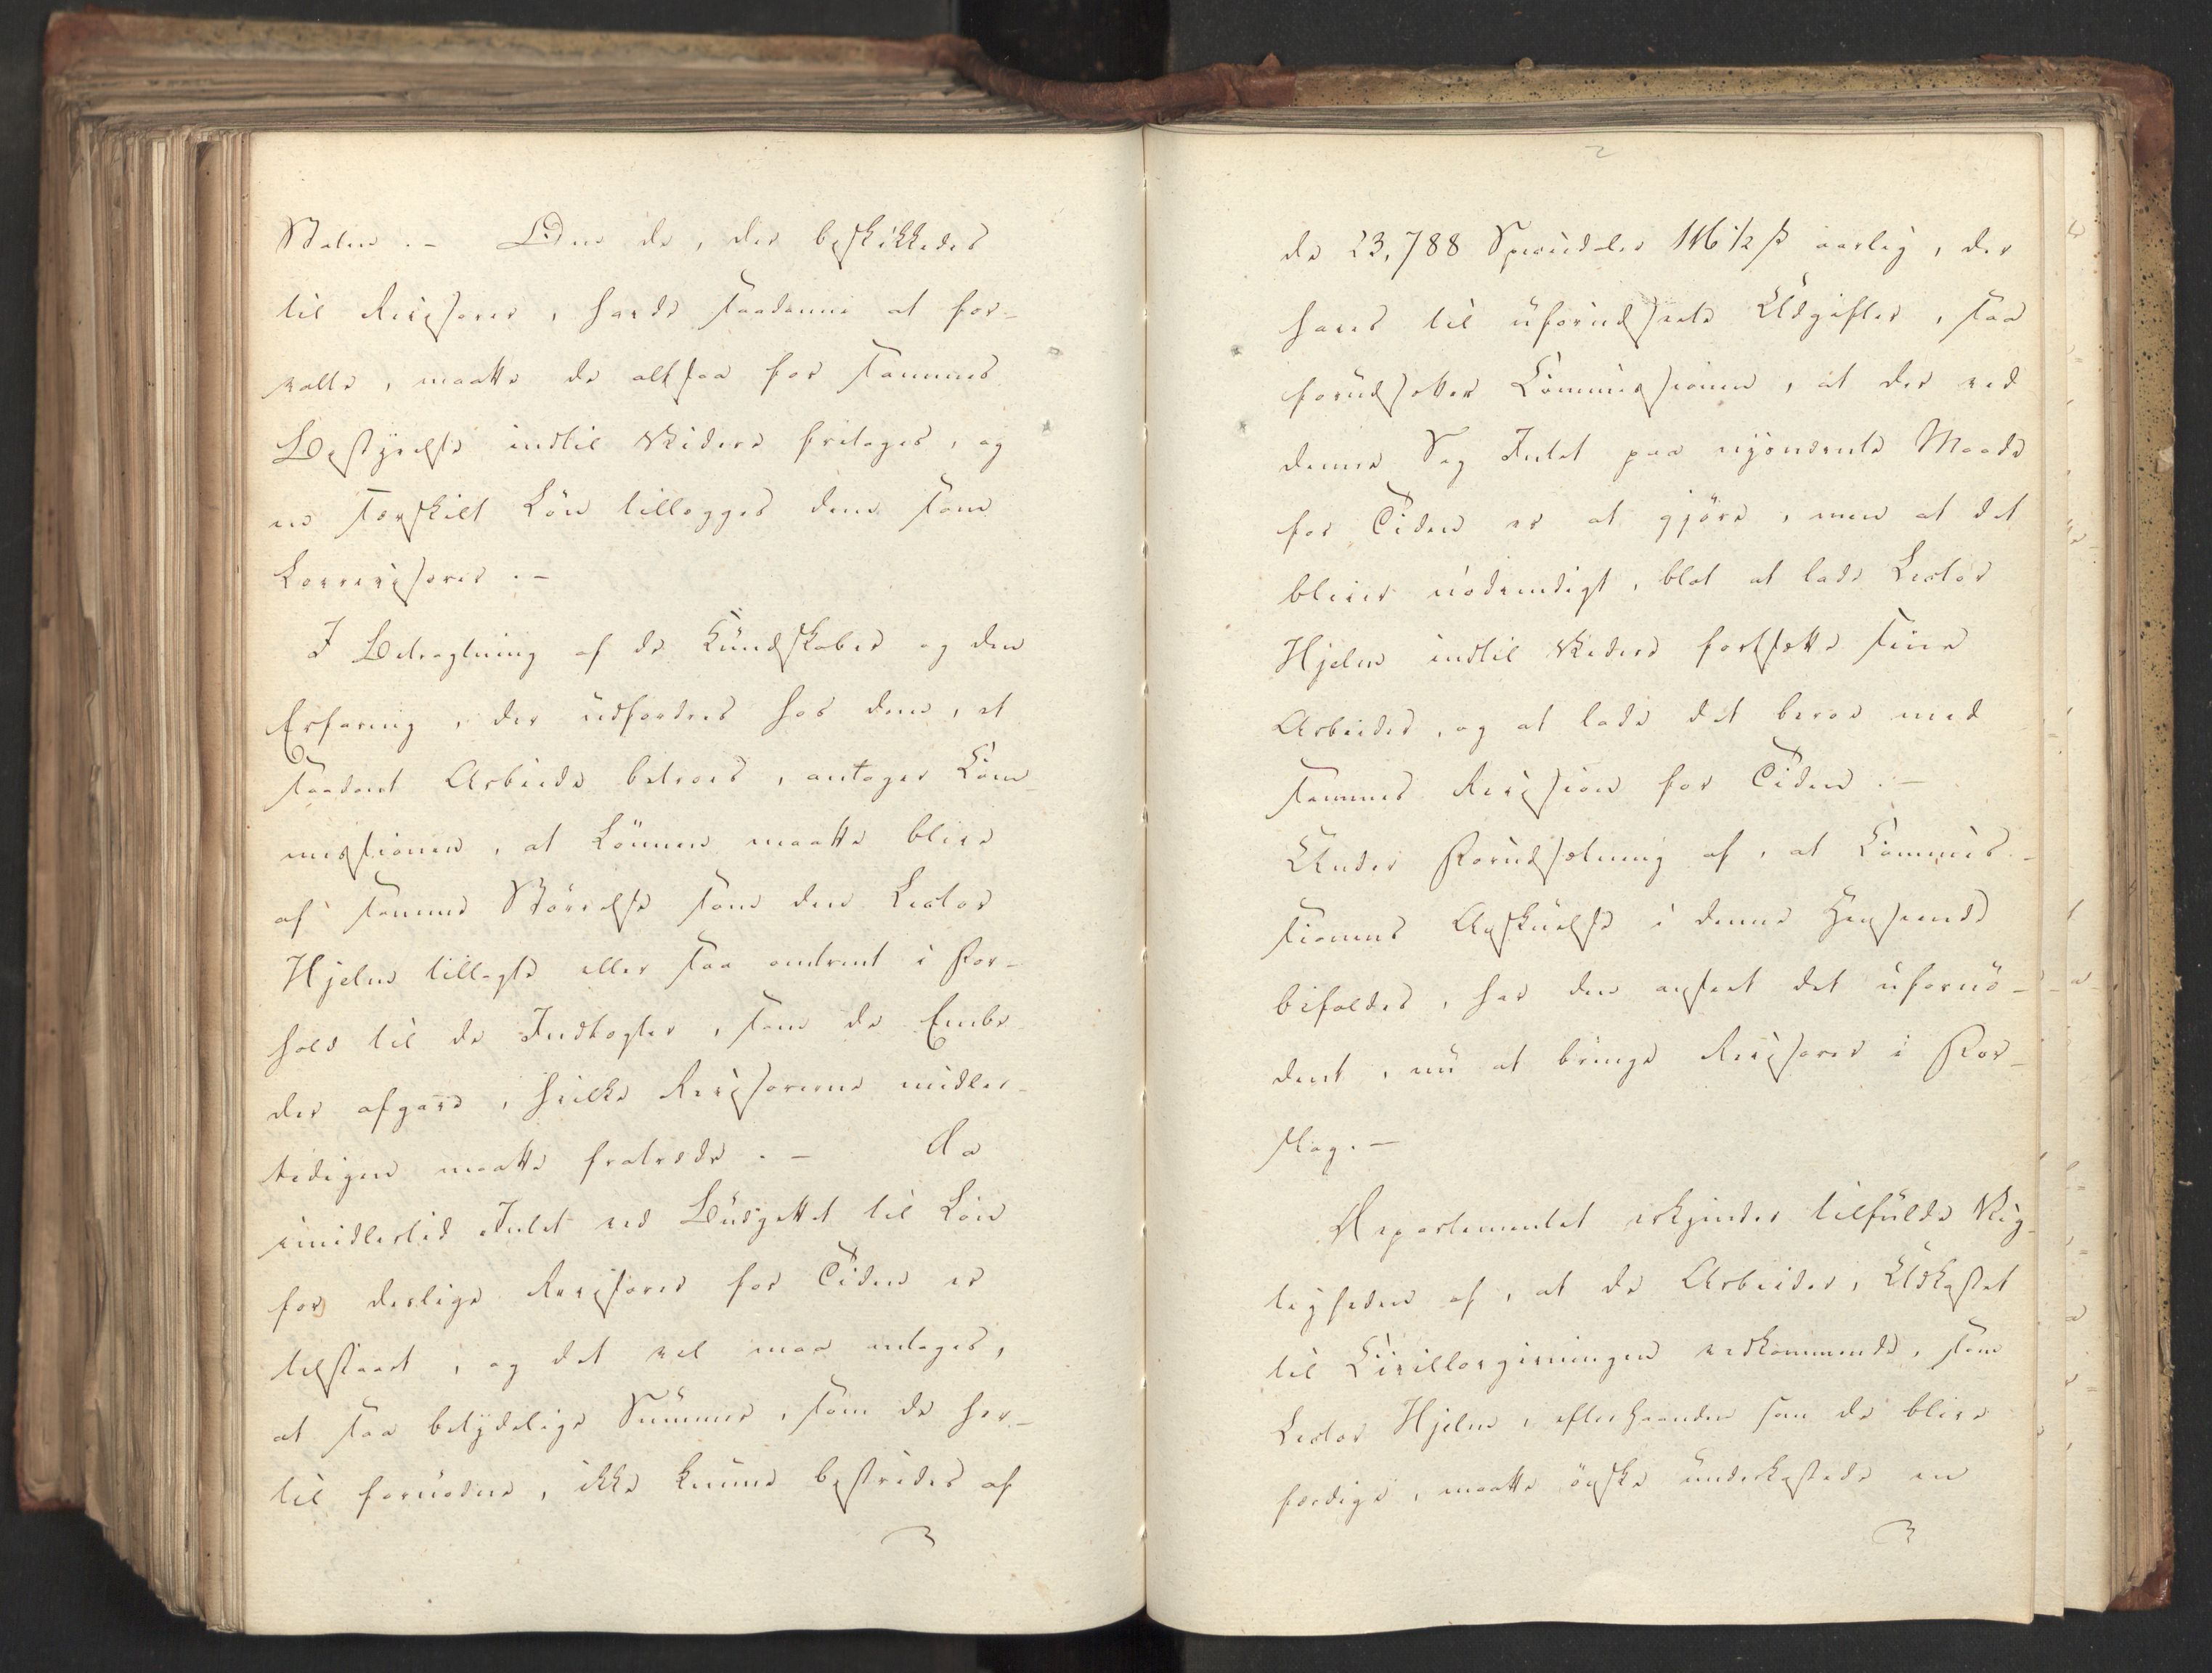 Staten. – Om de, der beskikkedes
til Revisorer, havde saadanne at for-
valte, maatte de altsaa for sammes
Bestyrelse indtil Videre fritages, og
en særskilt Lön tillægges dem som
Lovrevisorer. –
I Betragtning af de Kundskaber og den
Erfaring, der udfordres hos dem, et
saadant Arbeide betroes, antager Com-
missionen, at Lönnen maatte blive
af samme Störrelse som den Lector
Hjelm tillagte eller saa omtrent i For-
hold til de Indtægter, som de Embe-
der afgave, hvilke Revisorerne midler-
tidigen maatte fratræde. – Da
imidlertid Intet ved Budgettet til Lön
for deslige Revisorer for Tiden er
tilstaaet, og det vel maa antages,
at saa betydelige Summer, som de her-
til fornödne, ikke kunne bestrides af
de 23,788 Speciedaler 116 1/2 ß aarlig, der
haves til uforudseete Udgifter, saa
forudsætter Commissionen, at der ved
denne Sag Intet paa nyönævnte Maade
for Tiden er at gjöre, men at det
bliver nödvendigt, blot at lade Lector
Hjelm indtil Videre fortsætte sine
Arbeider, og at lade det beroe med
sammes Revision for Tiden. –
Under Forudsætning af, at Commis-
sionens Anskuelse i denne Henseende
bifaldes, har den anseet det ufornö-
dent, nu at bringe Revisorer i For-
slag. –
Departementet erkjender tilfulde Vig-
tigheden af, at de Arbeider, Udkastet
til Civillovgivningen vedkommende, som
Lector Hjelm, efterhaanden som de blive
færdige, maatte önske underkastede en